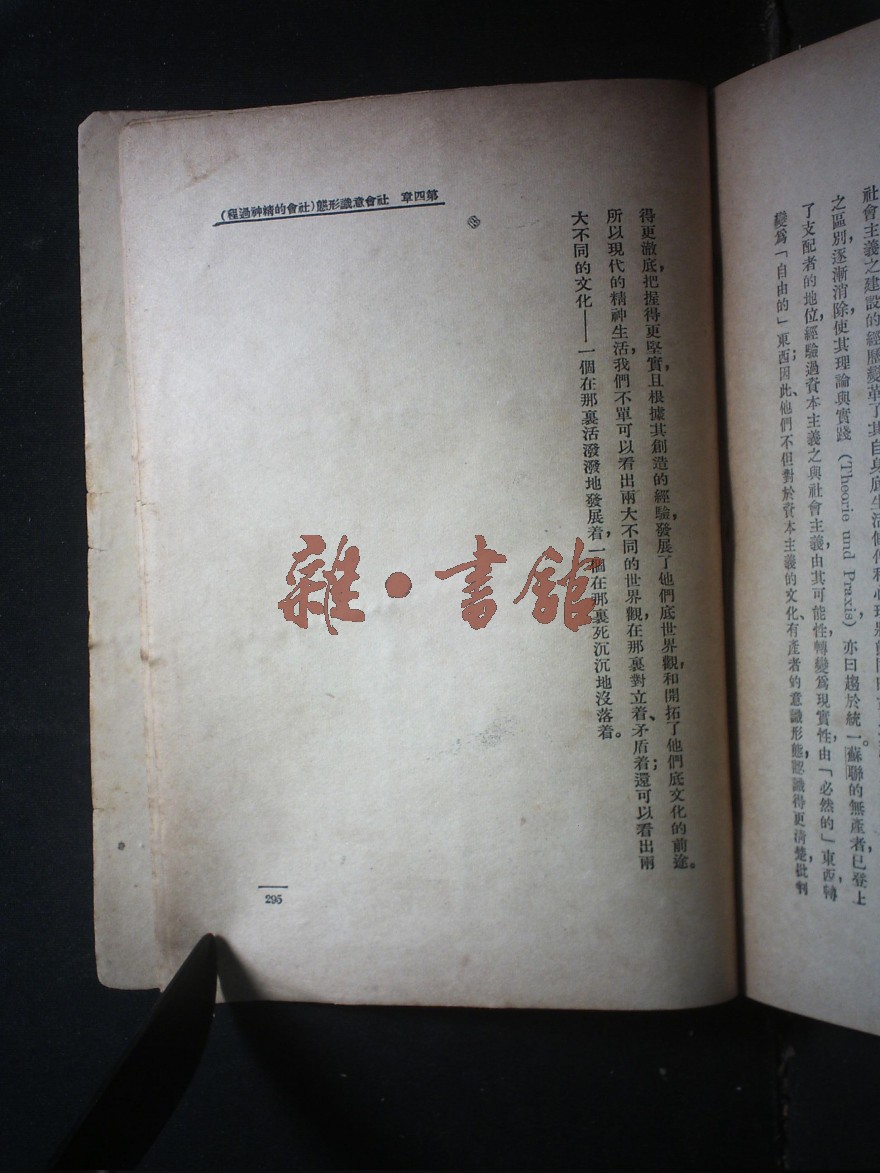 社會主義之建設的經歷變革了其自身底生活條件和心理狀
之區別逐漸消除使其理論與實踐（Theorie und Praxis）亦曰趨於統一。蘇聯的無產者已登上
了支配者的地位，經驗過資本主義之與社會主義由其可能性轉變爲現實性，由「必然的」東西轉
變爲「自由的」東西；因此、他們不但對於資本主義的文化、有產者的意識形態，認識得更清楚，批判
第四章 社會意識形態（社會的精神過程）
得更澈底，把握得更堅實，且根據其創造的經驗，發展了他們底世界觀，和開拓了他們底文化的前途。
所以現代的精神生活，我們不單可以看出兩大不同的世界觀，在那裏對立着、矛盾着；還可以看出兩
大不同的文化——一個在那裏活潑潑地發展着，一個在那裏死沉沉地沒落着。
295
雜·書館